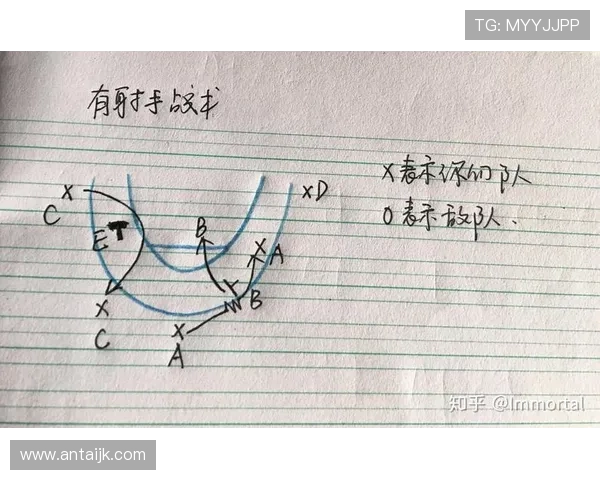 TG: MYYJJPP
有射手战术
X表示你的队
O表示敌队.
X
C
E
B
X
A
XD
X
C
B
X
A
知乎 @Immortal
www.antaijk.com